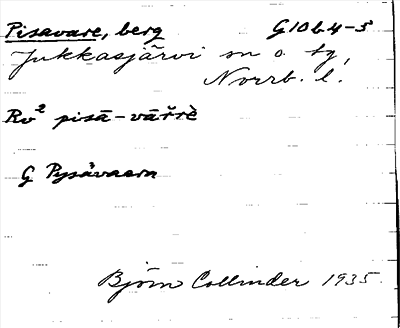 Pisavare, berg G10b4-5
Jukkasjärvi sn o. tg,
Norrb. l.
Rv² pisā-vāřrè
G Pysävaara
Björn Collinder 1935.